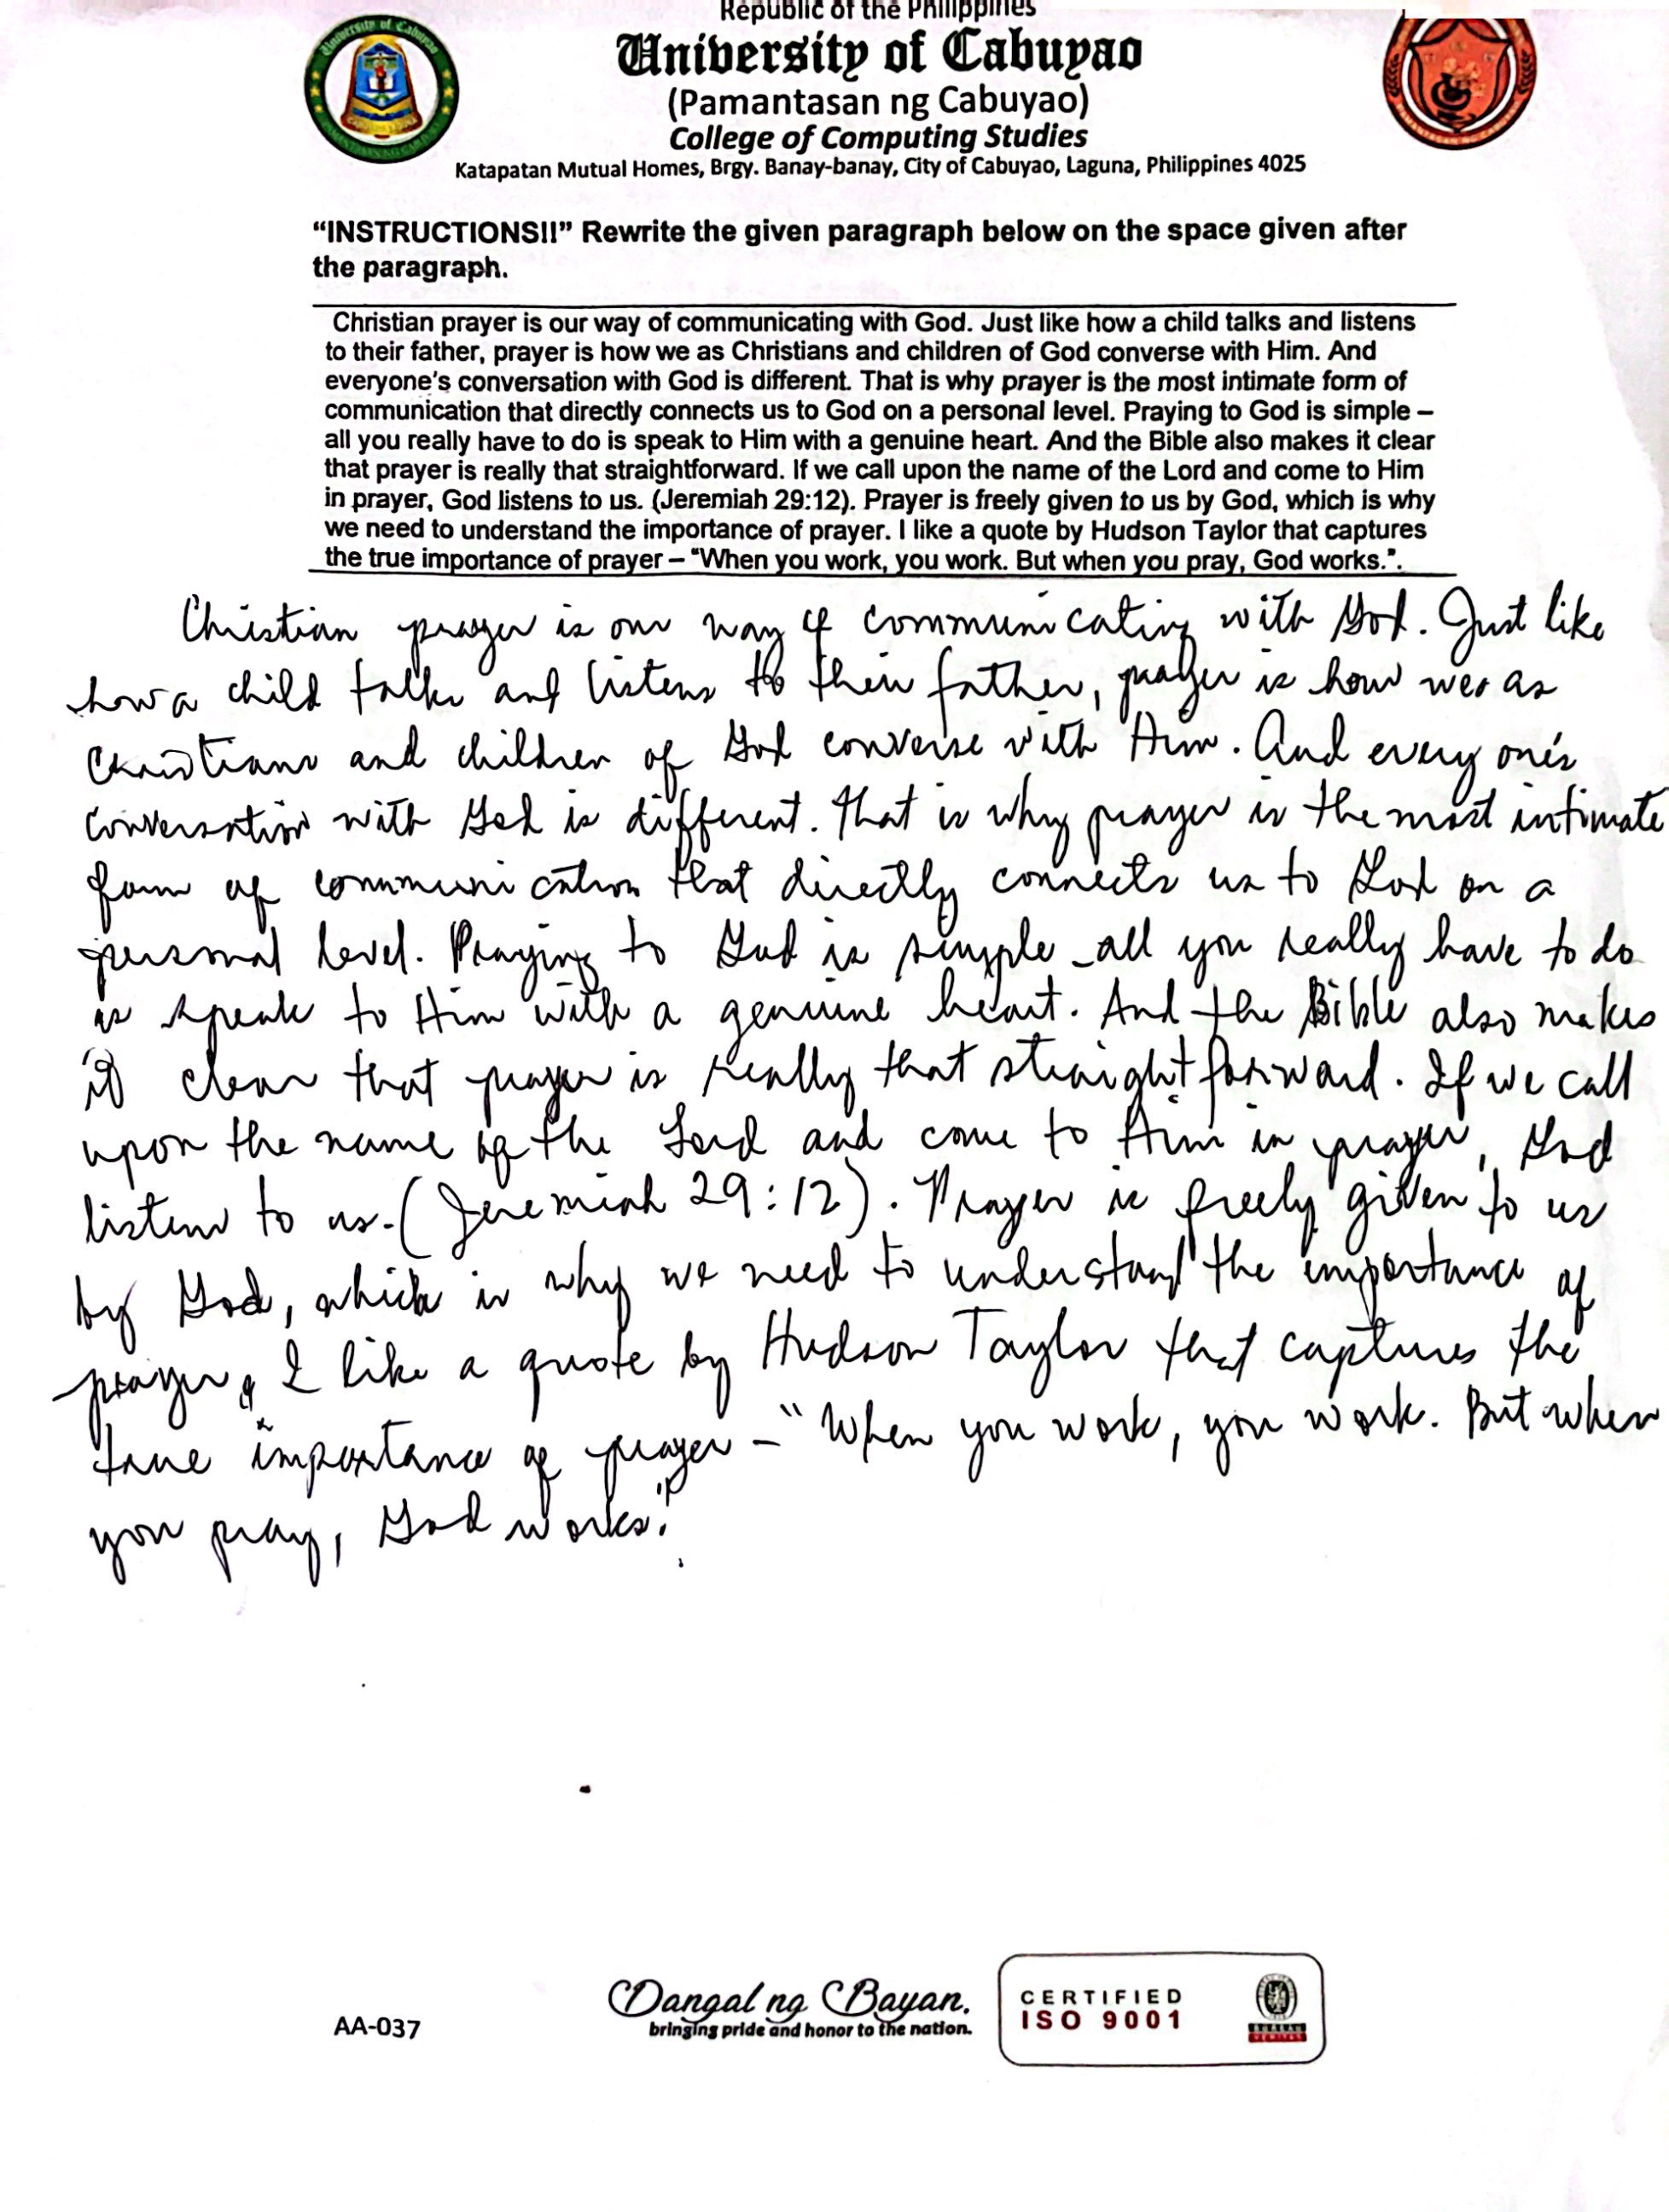 Republic of the Philippines
University of Cabuyao
(Pamantasan ng Cabuyao)
College of Computing Studies
Katapatan Mutual Homes, Brgy. Banay-banay, City of Cabuyao, Laguna, Philippines 4025
“INSTRUCTIONS!!” Rewrite the given paragraph below on the space given after
the paragraph.
Christian prayer is our way of communicating with God. Just like how a child talks and listens
to their father, prayer is how we as Christians and children of God converse with Him. And
everyone's conversation with God is different. That is why prayer is the most intimate form of
communication that directly connects us to God on a personal level. Praying to God is simple –
all you really have to do is speak to Him with a genuine heart. And the Bible also makes it clear
that prayer is really that straightforward. If we call upon the name of the Lord and come to Him
in prayer, God listens to us. (Jeremiah 29:12). Prayer is freely given to us by God, which is why
we need to understand the importance of prayer. I like a quote by Hudson Taylor that captures
the true importance of prayer – “When you work, you work. But when you pray, God works.”.
Christian prayer is our way of communicating with God. Just like
how a child talks and listens to their father, prayer is how we as
Christians and children of God converse with Him. And everyone's
conversation with God is different. That is why prayer is the most intimate
form of communication that directly connects us to God on a
personal level. Praying to God is simple – all you really have to do
is speak to Him with a genuine heart. And the Bible also makes
it clear that prayer is really that straightforward. If we call
upon the name of the Lord and come to Him in prayer, God
listens to us. (Jeremiah 29:12). Prayer is freely given to us
by God, which is why we need to understand the importance of
prayer. I like a quote by Hudson Taylor that captures the
true importance of prayer – “When you work, you work. But when
you pray, God works.”.
AA-037
Dangal ng Bayan.
bringing pride and honor to the nation.
CERTIFIED
ISO 9001
BUREAU
VERITAS